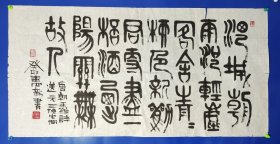 渭城朝
雨浥輕塵
客舍青〻
柳色新勸
君更盡一
杯酒西出
陽關無
故人
唐朝王維詩